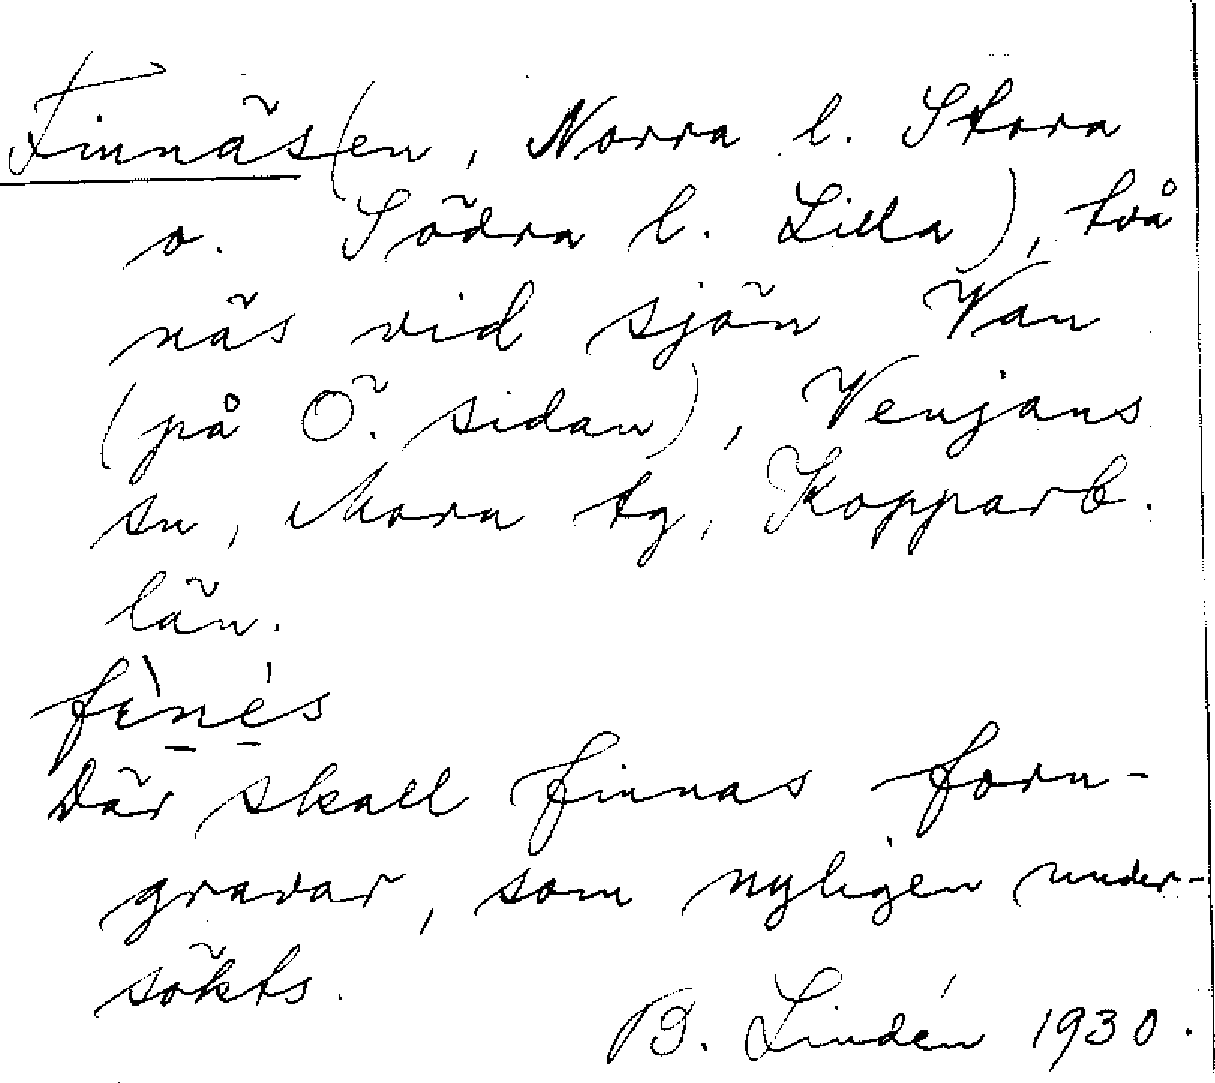 Finnäs(en, Norra l. Stora
o. Södra l. Lilla), två
näs vid sjön Van
(på Ö. sidan), Venjans
sn, Mora tg, Kopparb.
län.
fìnés
Där skall finnas forn-
gravar, som nyligen under-
sökts.
B. Lindén 1930.